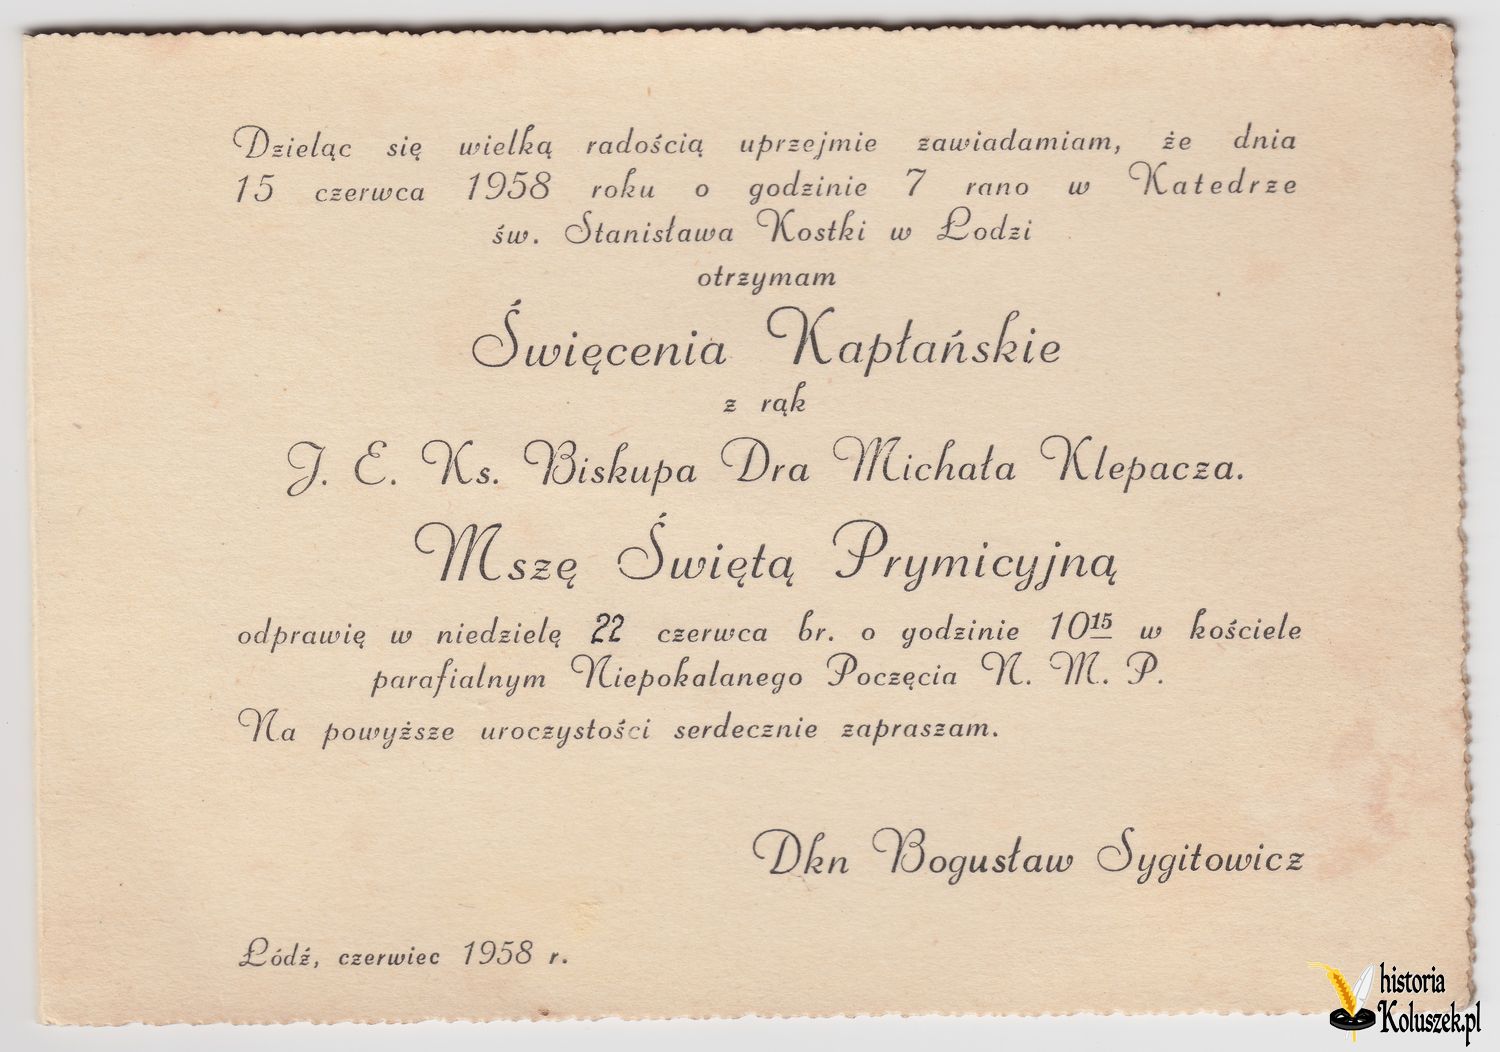 Dzieląc się wielką radością uprzejmie zawiadamiam, że dnia
15 czerwca 1958 roku o godzinie 7 rano w Katedrze
św. Stanisława Kostki w Łodzi
otrzymam
Święcenia Kapłańskie
z rąk
J. E. Ks. Biskupa Dra Michała Klepacza.
Mszę Świętą Prymicyjną
odprawię w niedzielę 22 czerwca br. o godzinie 10 15 w kościele
parafialnym Niepokalanego Poczęcia N. M. P.
Na powyższe uroczystości serdecznie zapraszam.
Dkn Bogusław Sygitowicz
Łódź, czerwiec 1958 r.
historia
Koluszek.pl